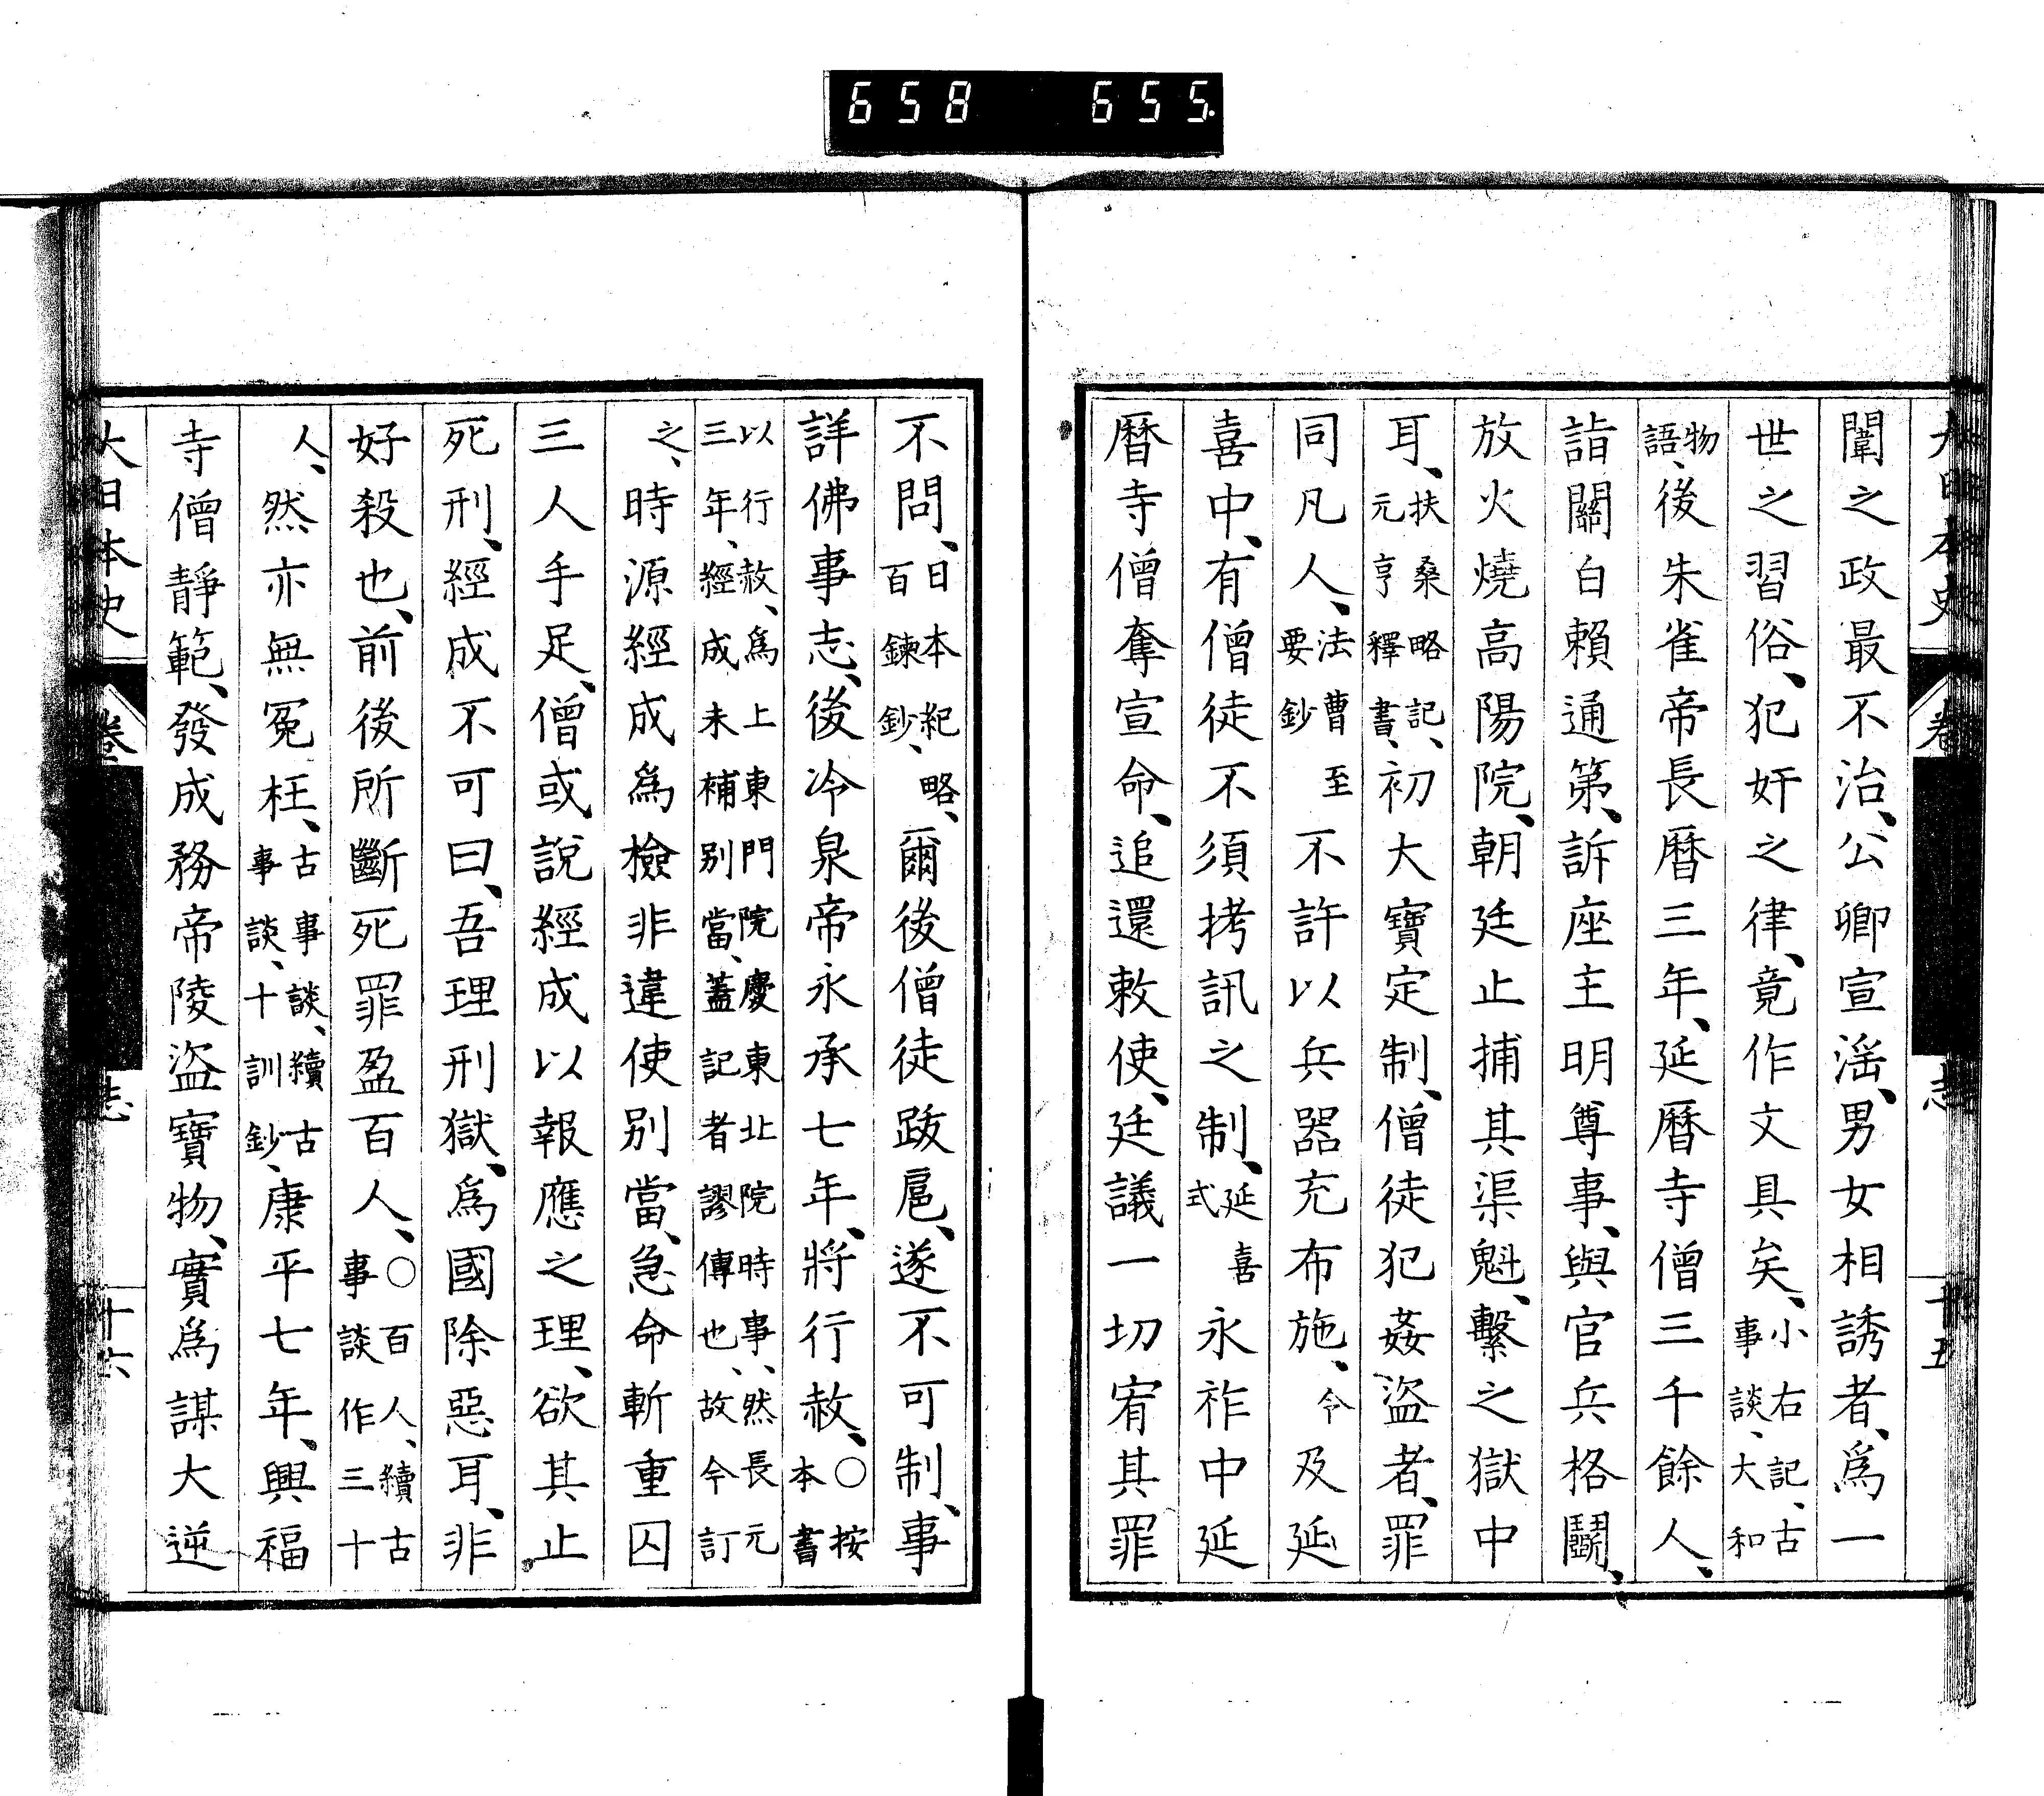 658 655
大日本史 卷 志 十五
闈之政最不治、公卿宣淫、男女相誘者、爲一
世之習俗、犯奸之律、竟作文具矣、小右記、古事談、大和
物語、後朱雀帝長曆三年、延曆寺僧三千餘人、
詣關白賴通第、訴座主明尊事、與官兵格鬭、
放火燒高陽院、朝廷止捕其渠魁、繫之獄中
耳、扶桑略記、元亨釋書、初大寶定制、僧徒犯姦盜者、罪
同凡人、法曹至要鈔不許以兵器充布施、令及延
喜中、有僧徒不須拷訊之制、延喜式永祚中延
曆寺僧奪宣命、追還敕使、廷議一切宥其罪
不問、日本紀略、百鍊鈔、爾後僧徒跋扈、遂不可制、事
詳佛事志、後冷泉帝永承七年、將行赦、○按本書
以行赦、爲上東門院慶東北院時事、然長元三年、經成未補別當、蓋記者謬傳也、故今訂
之、時源經成爲檢非違使別當、急命斬重囚
三人手足、僧或說經成以報應之理、欲其止
死刑、經成不可曰、吾理刑獄、爲國除惡耳、非
好殺也、前後所斷死罪盈百人、○百人、續古事談作三十
人、然亦無冤枉、古事談、續古事談、十訓鈔、康平七年、興福
寺僧靜範、發成務帝陵盜寶物、實爲謀大逆
大日本史 卷 志 十六